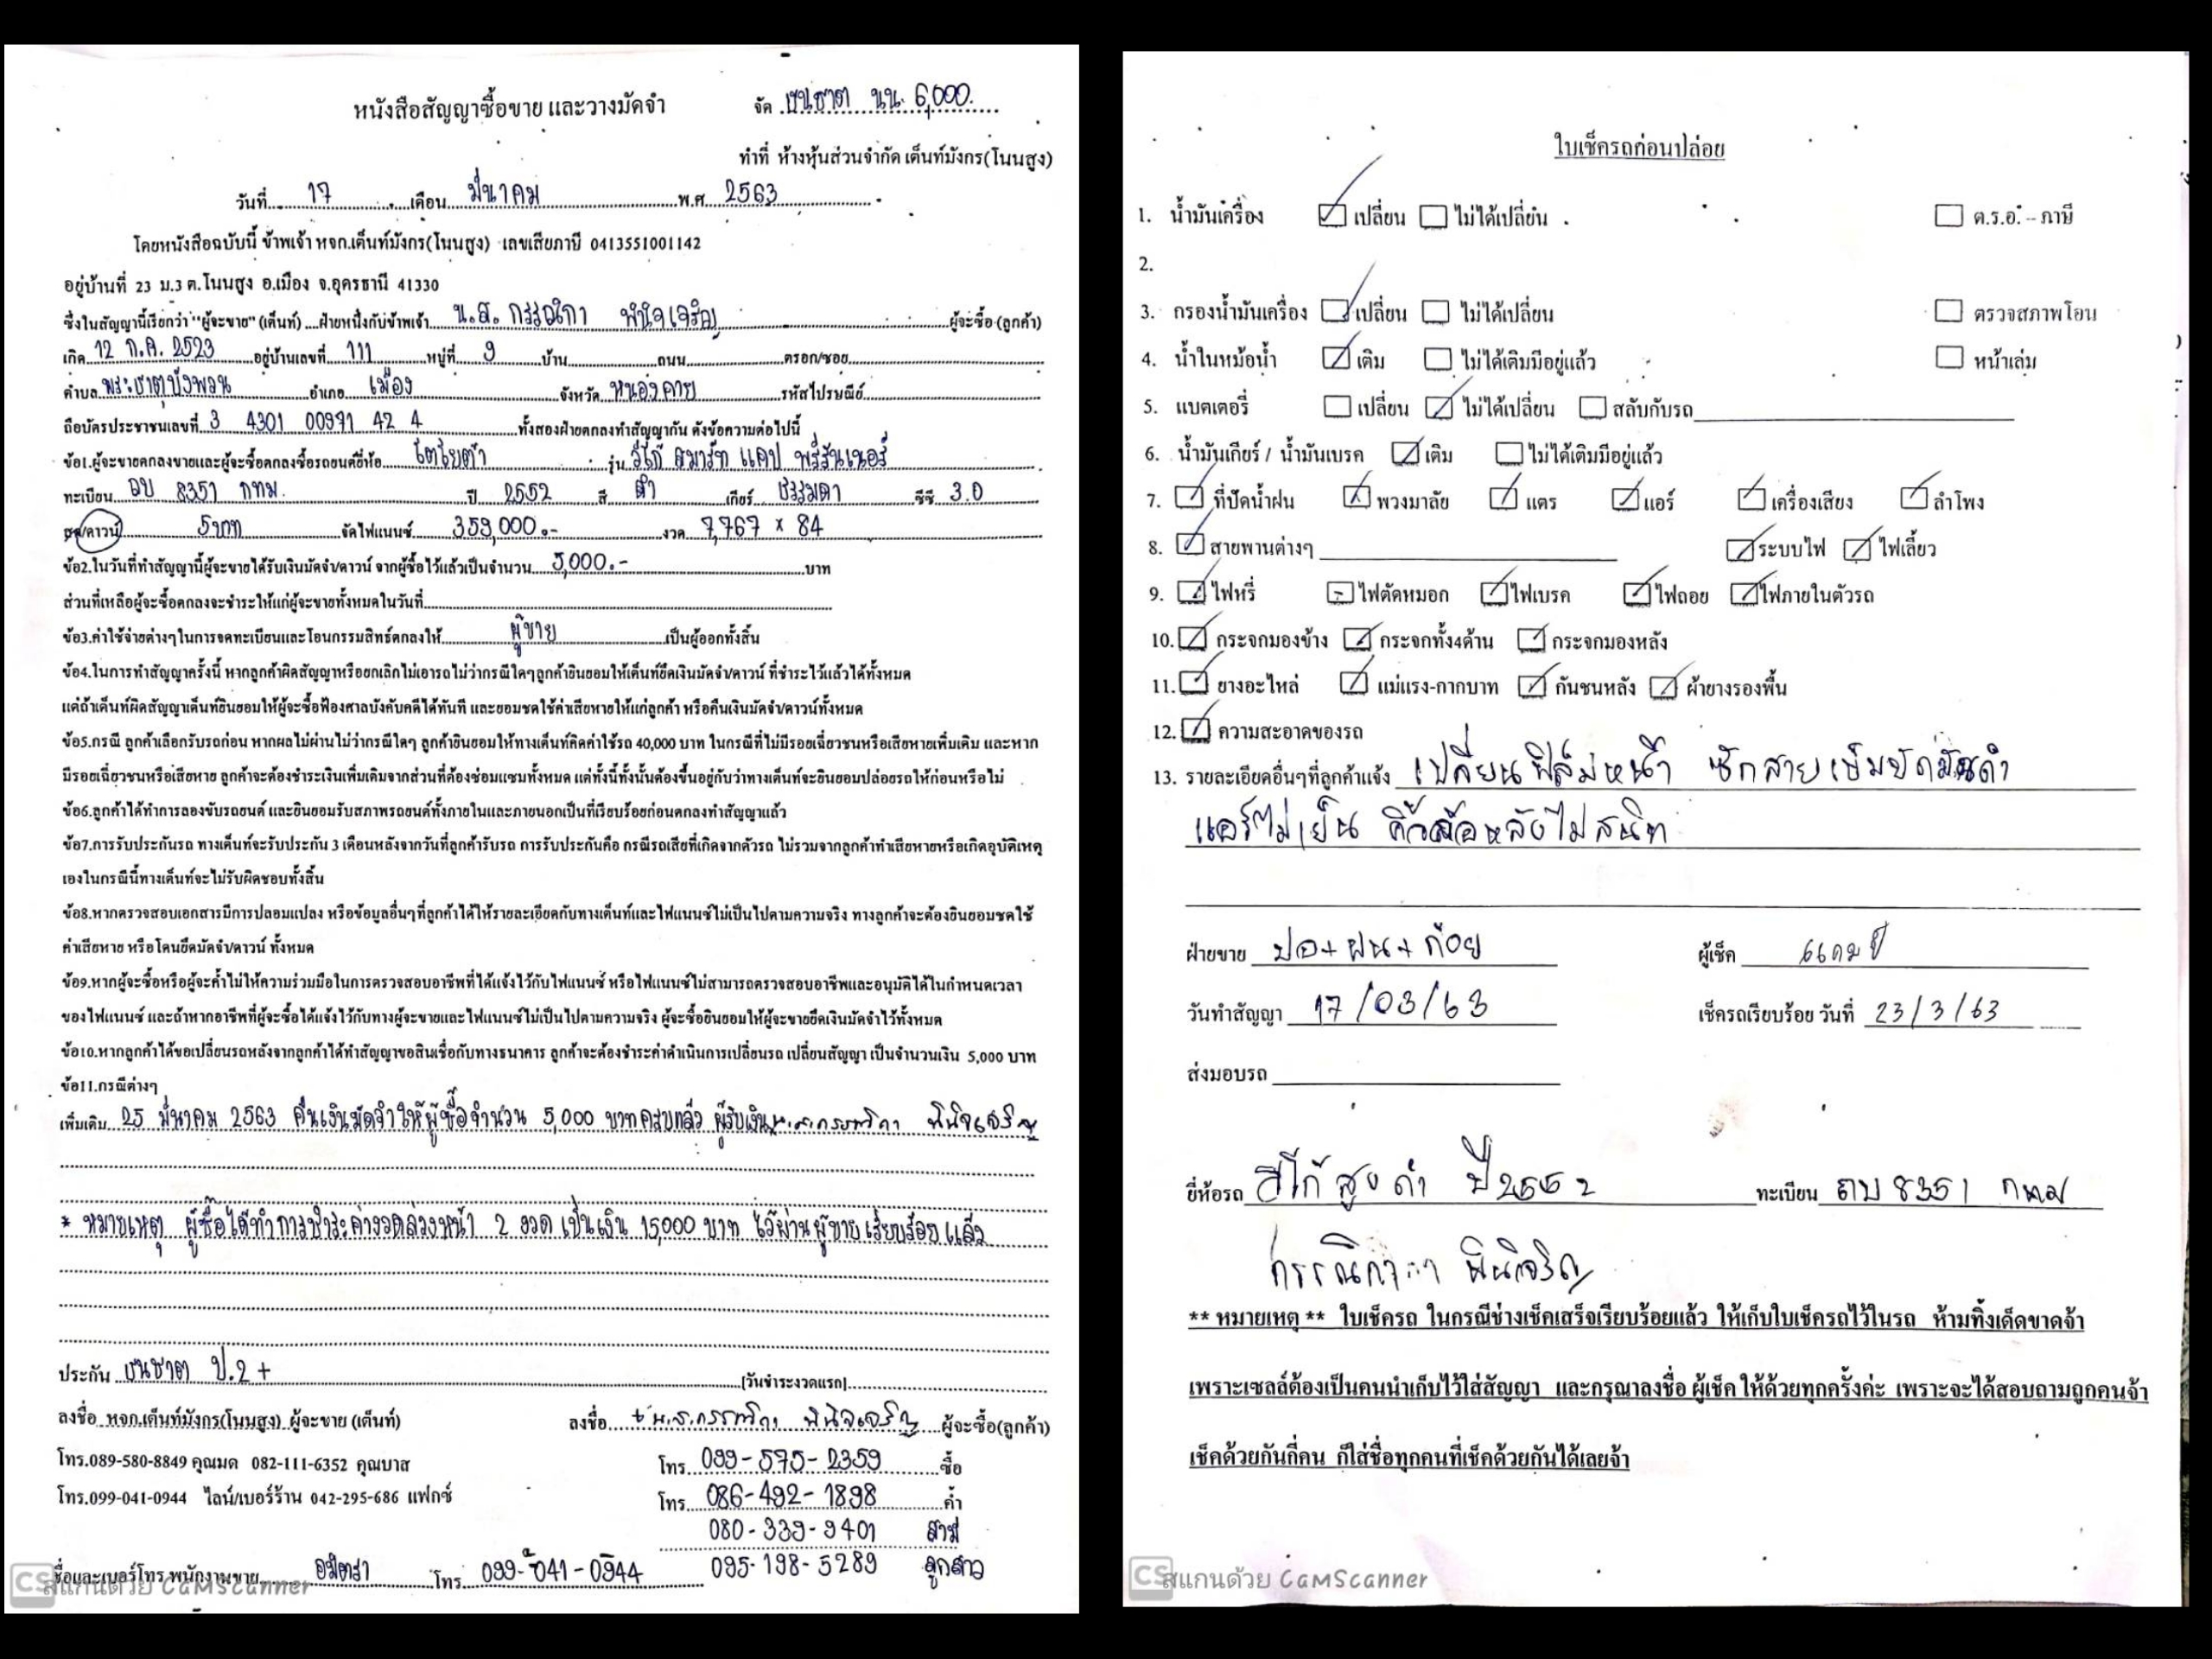 หนังสือสัญญาซื้อขาย และวางมัดจำ
จัด ธนชาต นน. 6,000.
ทำที่ ห้างหุ้นส่วนจำกัด เต็นท์มังกร(โนนสูง)
วันที่ 17 เดือน มีนาคม พ.ศ. 2563
โดยหนังสือฉบับนี้ ข้าพเจ้า หจก.เต็นท์มังกร(โนนสูง) เลขเสียภาษี 0413551001142
อยู่บ้านที่ 23 ม.3 ต.โนนสูง อ.เมือง จ.อุดรธานี 41330
ซึ่งในสัญญานี้เรียกว่า "ผู้จะขาย" (เต็นท์) ....ฝ่ายหนึ่งกับข้าพเจ้า น.ส. กรรณิกา พินิจเจริญ ผู้จะซื้อ (ลูกค้า)
เกิด 12 ก.ค. 2523 อยู่บ้านเลขที่ 111 หมู่ที่ 9 บ้าน ถนน ตรอก/ซอย
ตำบล พระธาตุบังพวน อำเภอ เมือง จังหวัด หนองคาย รหัสไปรษณีย์
ถือบัตรประชาชนเลขที่ 3 4301 00971 42 4 ทั้งสองฝ่ายตกลงทำสัญญากัน ดังข้อความต่อไปนี้
ข้อ1.ผู้จะขายตกลงขายและผู้จะซื้อตกลงซื้อรถยนต์ยี่ห้อ โตโยต้า รุ่น วีโก้ สมาร์ท แคป พรีรันเนอร์
ทะเบียน ฌบ 8351 กทม. ปี 2552 สี ดำ เกียร์ ธรรมดา ซีซี 3.0
สด/ดาวน์ 5บาท จัดไฟแนนซ์ 359,000.- งวด 7,767 x 84
ข้อ2.ในวันที่ทำสัญญานี้ผู้จะขายได้รับเงินมัดจำ/ดาวน์ จากผู้ซื้อไว้แล้วเป็นจำนวน 5,000.- บาท
ส่วนที่เหลือผู้จะซื้อตกลงจะชำระให้แก่ผู้จะขายทั้งหมดในวันที่
ข้อ3.ค่าใช้จ่ายต่างๆในการจดทะเบียนและโอนกรรมสิทธ์ตกลงให้ ผู้ขาย เป็นผู้ออกทั้งสิ้น
ข้อ4.ในการทำสัญญาครั้งนี้ หากลูกค้าผิดสัญญาหรือยกเลิกไม่เอารถไม่ว่ากรณีใดๆลูกค้ายินยอมให้เต็นท์ยึดเงินมัดจำ/ดาวน์ ที่ชำระไว้แล้วได้ทั้งหมด
แต่ถ้าเต็นท์ผิดสัญญาเต็นท์ยินยอมให้ผู้จะซื้อฟ้องศาลบังคับคดีได้ทันที และยอมชดใช้ค่าเสียหายให้แก่ลูกค้า หรือคืนเงินมัดจำ/ดาวน์ทั้งหมด
ข้อ5.กรณี ลูกค้าเลือกรับรถก่อน หากผลไม่ผ่านไม่ว่ากรณีใดๆ ลูกค้ายินยอมให้ทางเต็นท์คิดค่าใช้รถ 40,000 บาท ในกรณีที่ไม่มีรอยเฉี่ยวชนหรือเสียหายเพิ่มเติม และหาก
มีรอยเฉี่ยวชนหรือเสียหาย ลูกค้าจะต้องชำระเงินเพิ่มเติมจากส่วนที่ต้องซ่อมแซมทั้งหมด แต่ทั้งนี้ทั้งนั้นต้องขึ้นอยู่กับว่าทางเต็นท์จะยินยอมปล่อยรถให้ก่อนหรือไม่
ข้อ6.ลูกค้าได้ทำการลองขับรถยนต์ และยินยอมรับสภาพรถยนต์ทั้งภายในและภายนอกเป็นที่เรียบร้อยก่อนตกลงทำสัญญาแล้ว
ข้อ7.การรับประกันรถ ทางเต็นท์จะรับประกัน 3 เดือนหลังจากวันที่ลูกค้ารับรถ การรับประกันคือ กรณีรถเสียที่เกิดจากตัวรถ ไม่รวมจากลูกค้าทำเสียหายหรือเกิดอุบัติเหตุ
เองในกรณีนี้ทางเต็นท์จะไม่รับผิดชอบทั้งสิ้น
ข้อ8.หากตรวจสอบเอกสารมีการปลอมแปลง หรือข้อมูลอื่นๆที่ลูกค้าได้ให้รายละเอียดกับทางเต็นท์และไฟแนนซ์ไม่เป็นไปตามความจริง ทางลูกค้าจะต้องยินยอมชดใช้
ค่าเสียหาย หรือโดนยึดมัดจำ/ดาวน์ ทั้งหมด
ข้อ9.หากผู้จะซื้อหรือผู้จะค้ำไม่ให้ความร่วมมือในการตรวจสอบอาชีพที่ได้แจ้งไว้กับไฟแนนซ์ หรือไฟแนนซ์ไม่สามารถตรวจสอบอาชีพและอนุมัติได้ในกำหนดเวลา
ของไฟแนนซ์ และถ้าหากอาชีพที่ผู้จะซื้อได้แจ้งไว้กับทางผู้จะขายและไฟแนนซ์ไม่เป็นไปตามความจริง ผู้จะซื้อยินยอมให้ผู้จะขายยึดเงินมัดจำไว้ทั้งหมด
ข้อ10.หากลูกค้าได้ขอเปลี่ยนรถหลังจากลูกค้าได้ทำสัญญาขอสินเชื่อกับทางธนาคาร ลูกค้าจะต้องชำระค่าดำเนินการเปลี่ยนรถ เปลี่ยนสัญญา เป็นจำนวนเงิน 5,000 บาท
ข้อ11.กรณีต่างๆ
เพิ่มเติม 25 มีนาคม 2563 คืนเงินมัดจำให้ผู้ซื้อจำนวน 5,000 บาทครบแล้ว ผู้รับเงิน น.ส.กรรณิกา พินิจเจริญ
* หมายเหตุ ผู้ซื้อได้ทำการชำระค่างวดล่วงหน้า 2 งวด เป็นเงิน 15,000 บาท ไว้ผ่านผู้ขายเรียบร้อยแล้ว
ประกัน ธนชาต ป.2+ [วันชำระงวดแรก]
ลงชื่อ หจก.เต็นท์มังกร(โนนสูง) ผู้จะขาย (เต็นท์) ลงชื่อ น.ส.กรรณิกา พินิจเจริญ ผู้จะซื้อ(ลูกค้า)
โทร.089-580-8849 คุณมด 082-111-6352 คุณบาส โทร. 099-575-2359 ซื้อ
โทร.099-041-0944 ไลน์/เบอร์ร้าน 042-295-686 แฟกซ์ โทร. 086-492-1898 ค้ำ
080-339-9401 สามี
ชื่อและเบอร์โทร พนักงานขาย โทร 099-041-0944 095-198-5289 ลูกสาว
CS สแกนด้วย CamScanner
ใบเช็ครถก่อนปล่อย
1. น้ำมันเครื่อง เปลี่ยน ไม่ได้เปลี่ยน ต.ร.อ. – ภาษี
2.
3. กรองน้ำมันเครื่อง เปลี่ยน ไม่ได้เปลี่ยน ตรวจสภาพโอน
4. น้ำในหม้อน้ำ เติม ไม่ได้เติมมีอยู่แล้ว หน้าเล่ม
5. แบตเตอรี่ เปลี่ยน ไม่ได้เปลี่ยน สลับกับรถ
6. น้ำมันเกียร์ / น้ำมันเบรค เติม ไม่ได้เติมมีอยู่แล้ว
7. ที่ปัดน้ำฝน พวงมาลัย แตร แอร์ เครื่องเสียง ลำโพง
8. สายพานต่างๆ ระบบไฟ ไฟเลี้ยว
9. ไฟหรี่ ไฟตัดหมอก ไฟเบรค ไฟถอย ไฟภายในตัวรถ
10. กระจกมองข้าง กระจกทั้ง4ด้าน กระจกมองหลัง
11. ยางอะไหล่ แม่แรง-กากบาท กันชนหลัง ผ้ายางรองพื้น
12. ความสะอาดของรถ
13. รายละเอียดอื่นๆที่ลูกค้าแจ้ง เปลี่ยนฟิล์มหน้า ซักสายเข็มขัด
แอร์ไม่เย็น คิ้วล้อหลังไม่สนิท
ฝ่ายขาย ปอ+ฝน+ก้อย ผู้เช็ค
วันทำสัญญา 17/03/63 เช็ครถเรียบร้อย วันที่ 23/3/63
ส่งมอบรถ
ยี่ห้อรถ วีโก้ สูง ดำ ปี 2552 ทะเบียน ฌบ 8351 กทม
กรรณิการ์ พินิจเจริญ
** หมายเหตุ ** ใบเช็ครถ ในกรณีช่างเช็คเสร็จเรียบร้อยแล้ว ให้เก็บใบเช็ครถไว้ในรถ ห้ามทิ้งเด็ดขาดจ้า
เพราะเซลล์ต้องเป็นคนนำเก็บไว้ใส่สัญญา และกรุณาลงชื่อ ผู้เช็ค ให้ด้วยทุกครั้งค่ะ เพราะจะได้สอบถามถูกคนจ้า
เช็คด้วยกันกี่คน ก็ใส่ชื่อทุกคนที่เช็คด้วยกันได้เลยจ้า
CS สแกนด้วย CamScanner